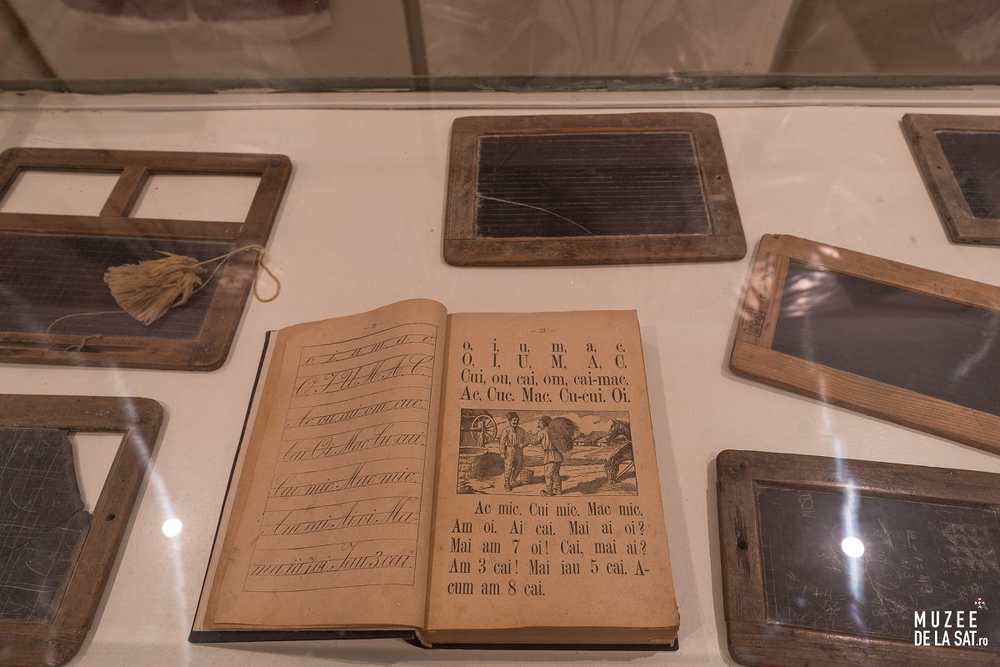 o, i, u, m, a, c.
O, I, U, M, A, C.
Ac ou mi om cuc.
Cai Oi Mac Cu cui.
Cai mic. Mac mic.
mai iau 3 cai.
— 21 —
o, i, u, m, a, c.
O, I, U, M, A, C.
Cui, ou, cai, om, cai-mac.
Ac. Cuc. Mac. Cu-cui. Oi.
Ac mic. Cui mic. Mac mic.
Am oi. Ai cai. Mai ai oi?
Mai am 7 oi! Cai, mai ai?
Am 3 cai! Mai iau 5 cai. A-
cum am 8 cai.
MUZEE
DE LA SAT.ro